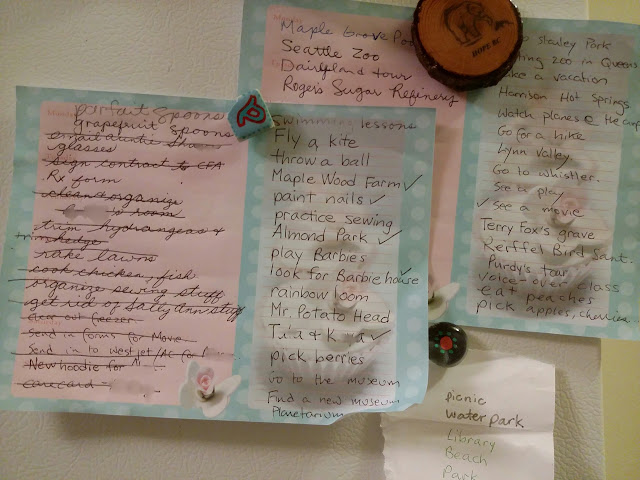 parfait spoons
grapefruit spoons
email auntie
glasses
sign contract to CFA
Rx form
clean & organize
room
trim hydrangeas &
trim hedge
rake lawns
cook chicken, fish
organize sewing stuff
get rid of Sally Ann stuff
clear out freezer
Send in forms for Movie
Send in to Westjet/AC for
New hoodie for
carecard -
swimming lessons
Fly a kite
throw a ball
Maple Wood Farm ✓
paint nails ✓
practice sewing
Almond Park ✓
play Barbies
look for Barbie house ✓
rainbow loom
Mr. Potato Head
✓
pick berries
Go to the museum
Find a new museum
Planetarium
Maple Grove
Seattle Zoo
Dairyland tour
Rogers Sugar Refinery
Stanley Park
zoo in Queens
a vacation
Harrison Hot Springs
Watch planes @ the
Go for a hike
Lynn Valley
Go to Whistler.
See a play
✓ See a movie
Terry Fox's grave
Reiffel Bird Sanct.
Purdy's tour
voice-over class
eat peaches
pick apples,
picnic
water park
Library
Beach
Park
HOPE BC